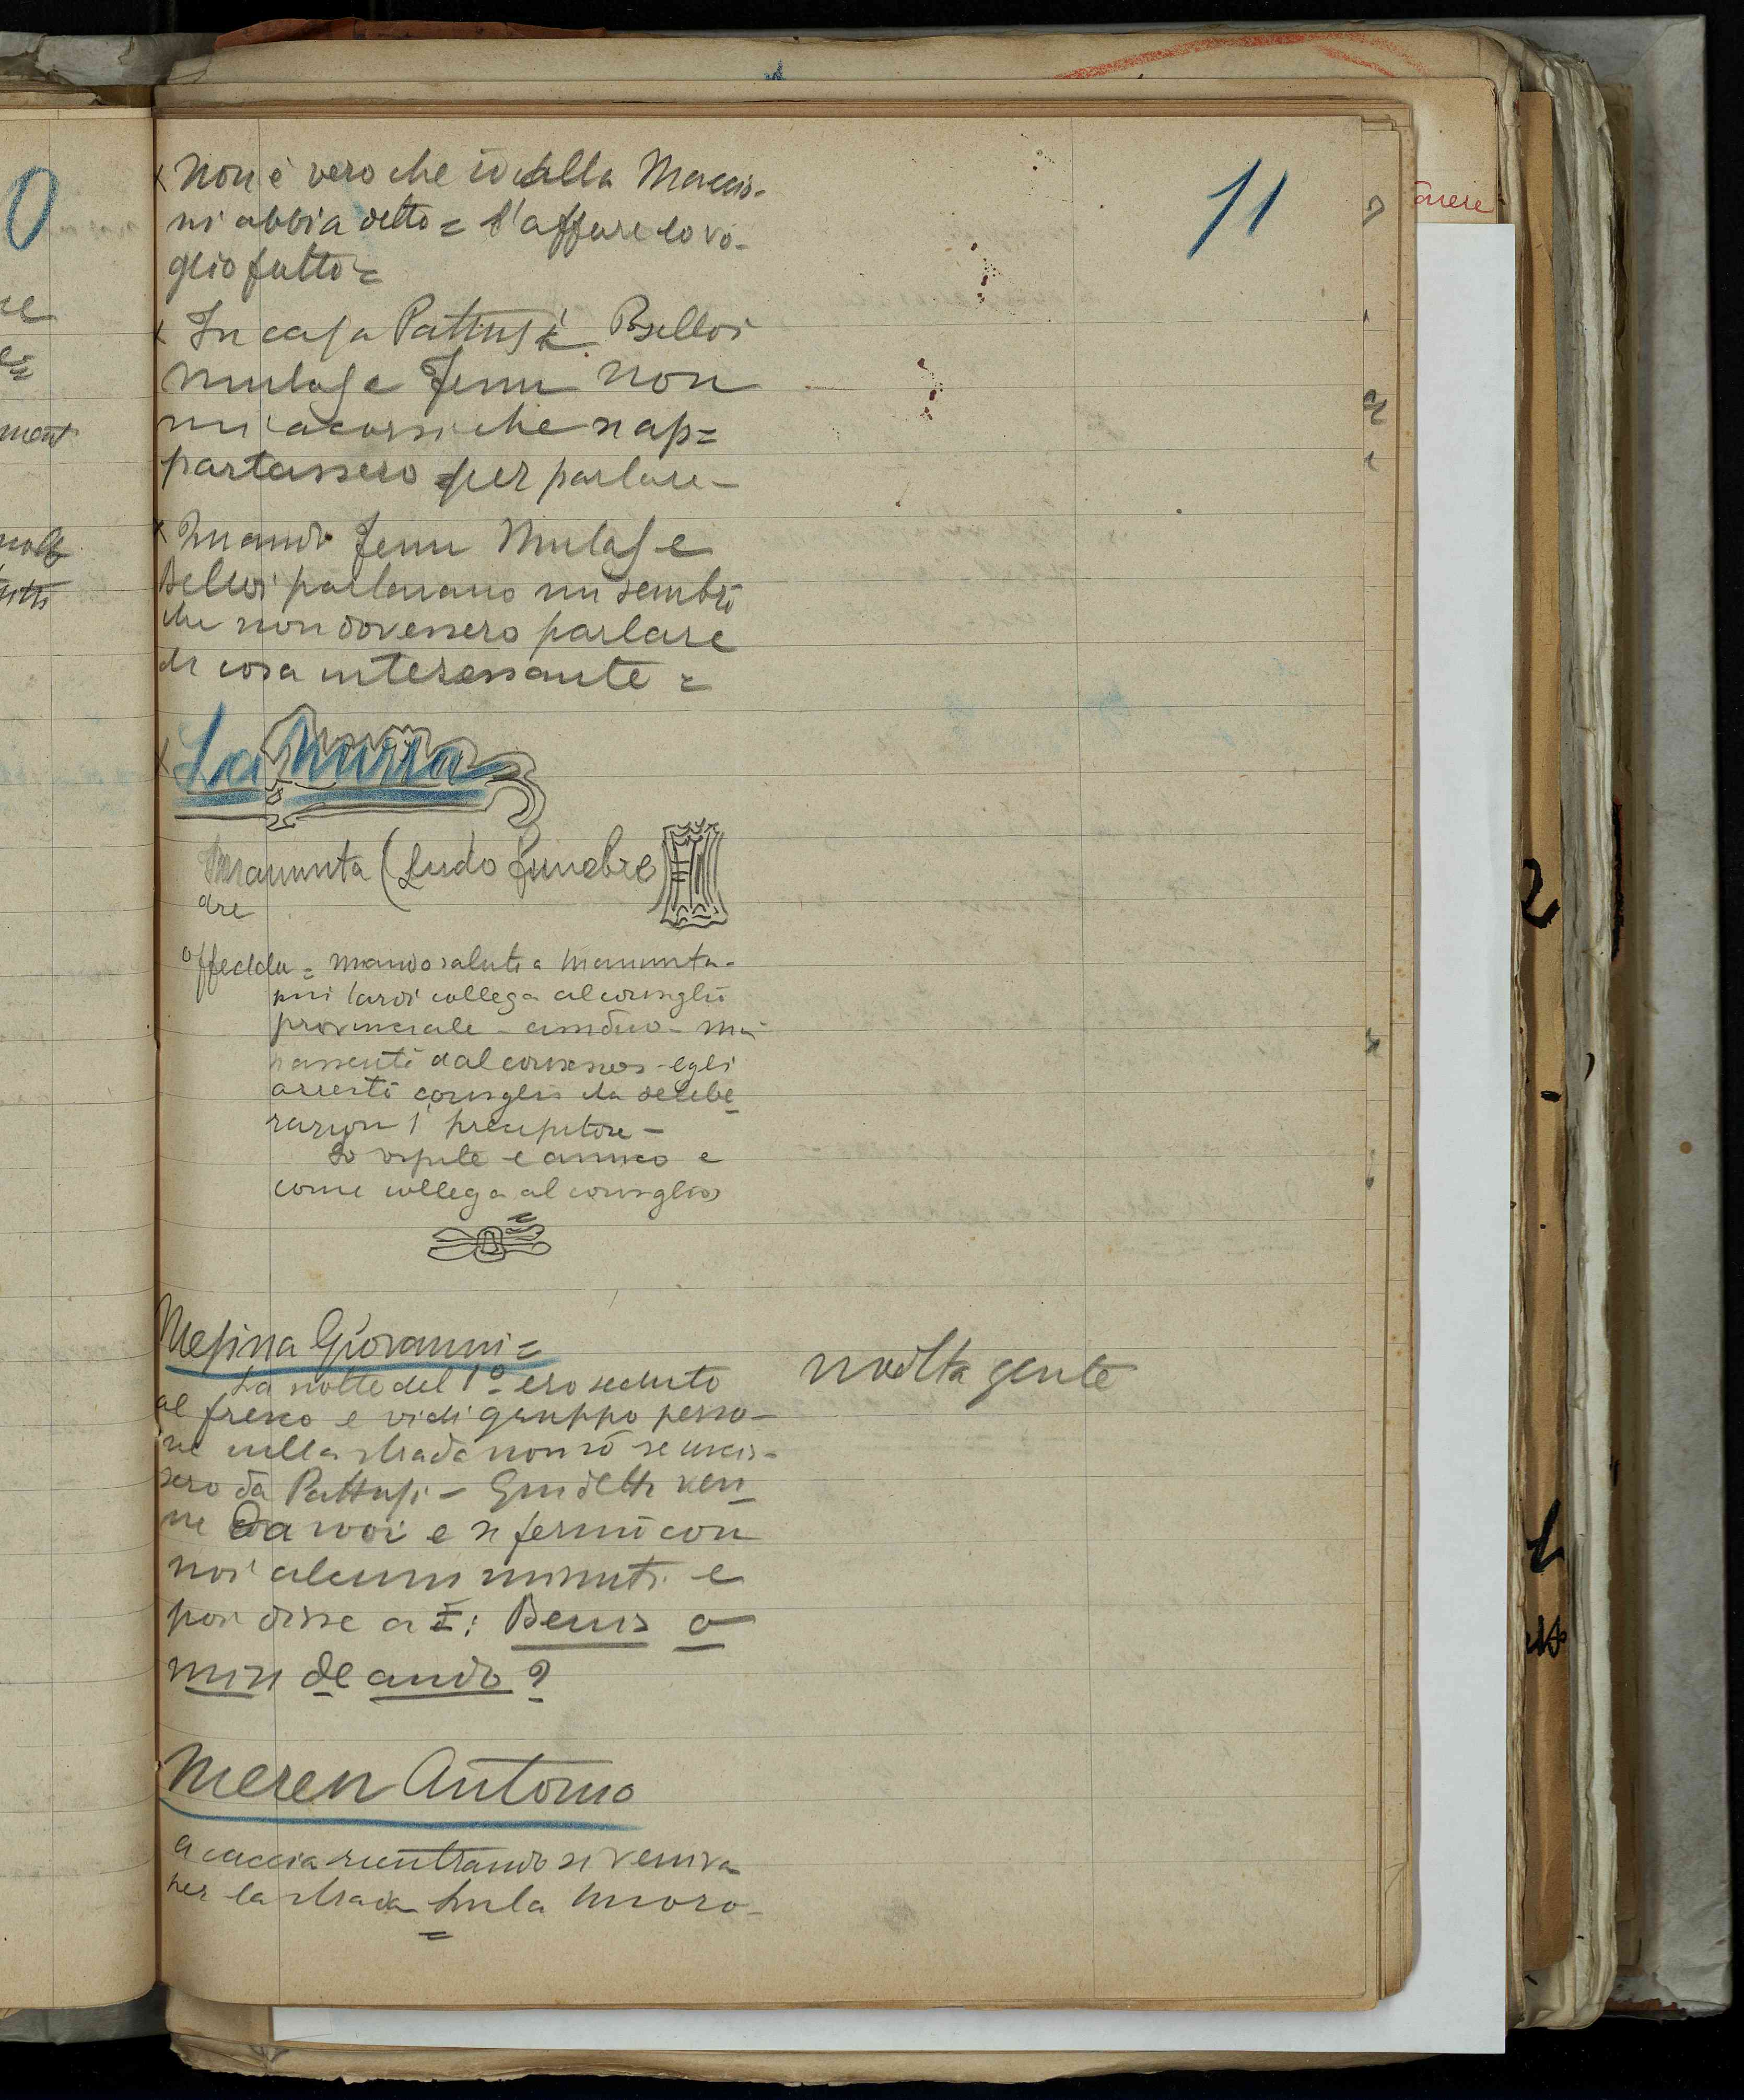 11
Non è vero che io alla Marcis-
ni abbia detto = l'affare lo vo-
glio fatto =
In casa Pattusi Belloi
Mulas e Fenu non
mi accorsi che s'ap=
partassero per parlare -
Quando Fenu Mulas e
Belloi parlavano mi sembrò
che non dovessero parlare
di cosa interessante =
La Murra
Manunta (Ludo funebre)
dre
Offeddu = mando saluti a Manunta -
più tardi collega al consiglio
provinciale - amòno - mai
passenti dal consesso - egli
arrestò consiglio da delibe-
razioni precipitose -
Io ospite e amico e
come collega al consiglio
Mesina Giovanni =
La notte del 1º ero seduto
al fresco e vidi gruppo perso-
ne nella strada non sò se uscis-
sero da Pattusi - Guiletti ven-
ne da noi e si fermò con
noi alcuni minuti e
poi disse a I: Benis o
minde ando?
molta gente
Mereu Antonio
a caccia rientrando si veniva
per la strada Lula Nuoro -